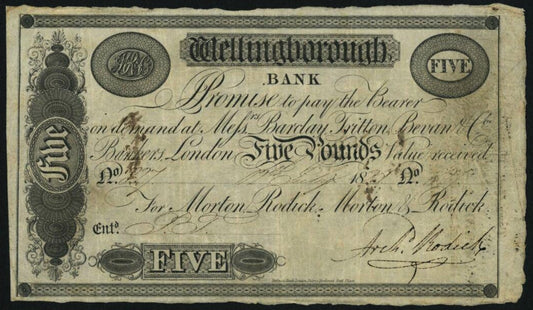 Wellingborough
FIVE
BANK
I Promise to pay the Bearer
on demand at Messrs. Barclay, Tritton, Bevan & Co.
Bankers, London Five Pounds Value received
Five
No. 18 No.
For Morton, Rodick, Morton & Rodick.
Entd.
Archd. Rodick
FIVE